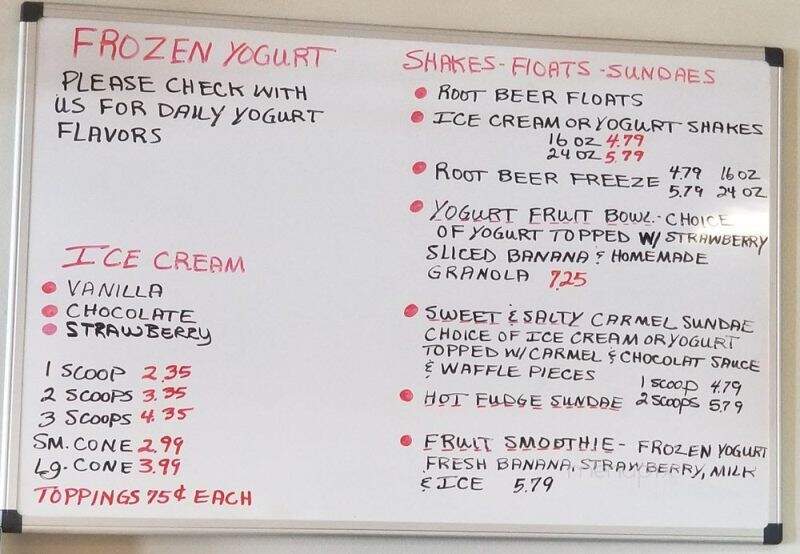 FROZEN YOGURT
PLEASE CHECK WITH
US FOR DAILY YOGURT
FLAVORS
ICE CREAM
VANILLA
CHOCOLATE
STRAWBERRY
1 SCOOP 2.35
2 SCOOPS 3.35
3 SCOOPS 4.35
SM. CONE 2.99
Lg. CONE 3.99
TOPPINGS 75¢ EACH
SHAKES - FLOATS - SUNDAES
ROOT BEER FLOATS
ICE CREAM OR YOGURT SHAKES
16 OZ 4.79
24 OZ 5.79
ROOT BEER FREEZE 4.79 16 OZ
5.79 24 OZ
YOGURT FRUIT BOWL - CHOICE
OF YOGURT TOPPED W/ STRAWBERRY
SLICED BANANA & HOMEMADE
GRANOLA 7.25
SWEET & SALTY CARMEL SUNDAE
CHOICE OF ICE CREAM OR YOGURT
TOPPED W/ CARMEL & CHOCOLAT SAUCE
& WAFFLE PIECES
1 SCOOP 4.79
HOT FUDGE SUNDAE 2 SCOOPS 5.79
FRUIT SMOOTHIE - FROZEN YOGURT
FRESH BANANA, STRAWBERRY, MILK
& ICE 5.79